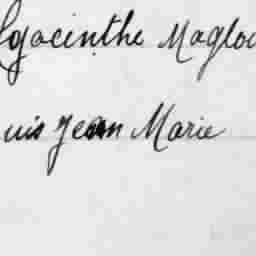 Hyacinthe Magloi
uis Jean Marie